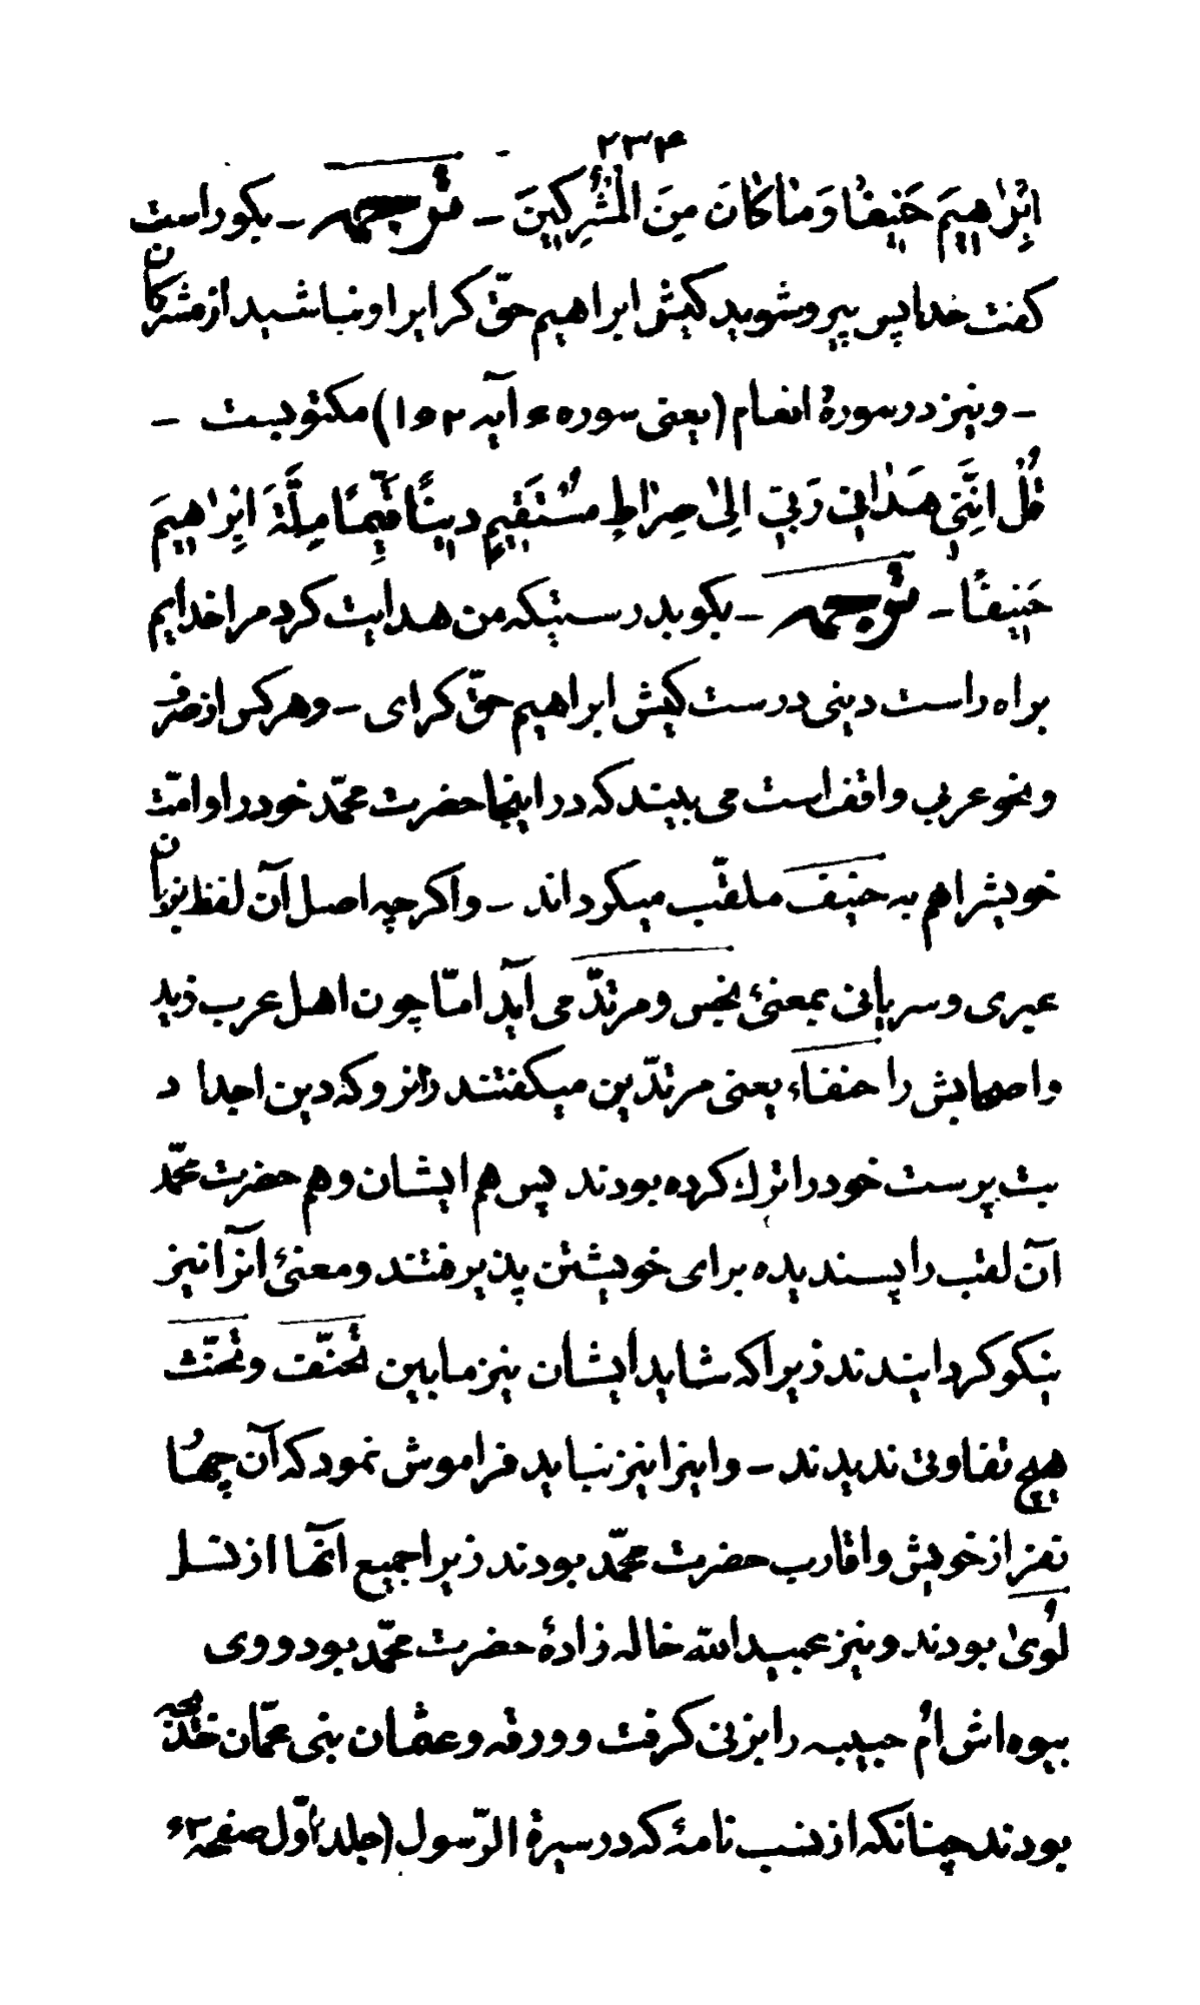 ۲۳۴
اِبْرٰاهِیمَ حَنِیفًا وَمٰا کَانَ مِنَ الْمُشْرِکِینَ ـ ترجمه ـ بکو راست
کفت خدا پس پیرو شوید کیش ابراهیم حقّ کرا یرا و نباشید از مشرکان
ـ و نیز در سورهٔ انعام (یعنی سوره ۶ آیه ۱۶۲) مکتوبست ـ
قُلْ اِنَّنِی هَدٰانِی رَبِّی اِلیٰ صِرٰاطٍ مُسْتَقِیمٍ دِینًا قَیِّمًا مِلَّةَ اِبْرٰاهِیمَ
حَنِیفًا ـ ترجمه ـ بکو بدرستیکه من هدایت کرد مرا خدایم
براه راست دینی درست کیش ابراهیم حقّ کرای ـ و هر کس از صرف
و نحو عربی واقف است می بیند که در اینجا حضرت محمّد خود را و امّت
خویشرا هم به حنیف ملقّب میکرداند ـ و اکر چه اصل آن لفظ بزبان
عبری و سریانی بمعنیٔ نجس و مرتدّ می آید امّا چون اهل عرب زید
و اصحابش را حنفاء یعنی مرتدّین میکفتند زانرو که دین اجداد
بت پرست خود را ترک کرده بودند پس هم ایشان و هم حضرت محمّد
آن لقب را پسندیده برای خویشتن پذیرفتند و معنیٔ انرا نیز
نیکو کردانیدند زیرا که شاید ایشان نیز مابین تحنّف و تحنّث
هیچ تفاوتی ندیدند ـ و اینرا نیز نباید فراموش نمود که آن چهار
نفر از خویش و اقارب حضرت محمّد بودند زیرا جمیع آنها از نسل
لُویٰ بودند و نیز عبیدالله خاله زادهٔ حضرت محمّد بود و وی
بیوه اش اُم حبیبه را بزنی کرفت و ورقه و عثمان بنی عمّان خدیجه
بودند چنانکه از نسب نامهٔ که در سیرة الرّسول (جلد اوّل صفحه ۶۳